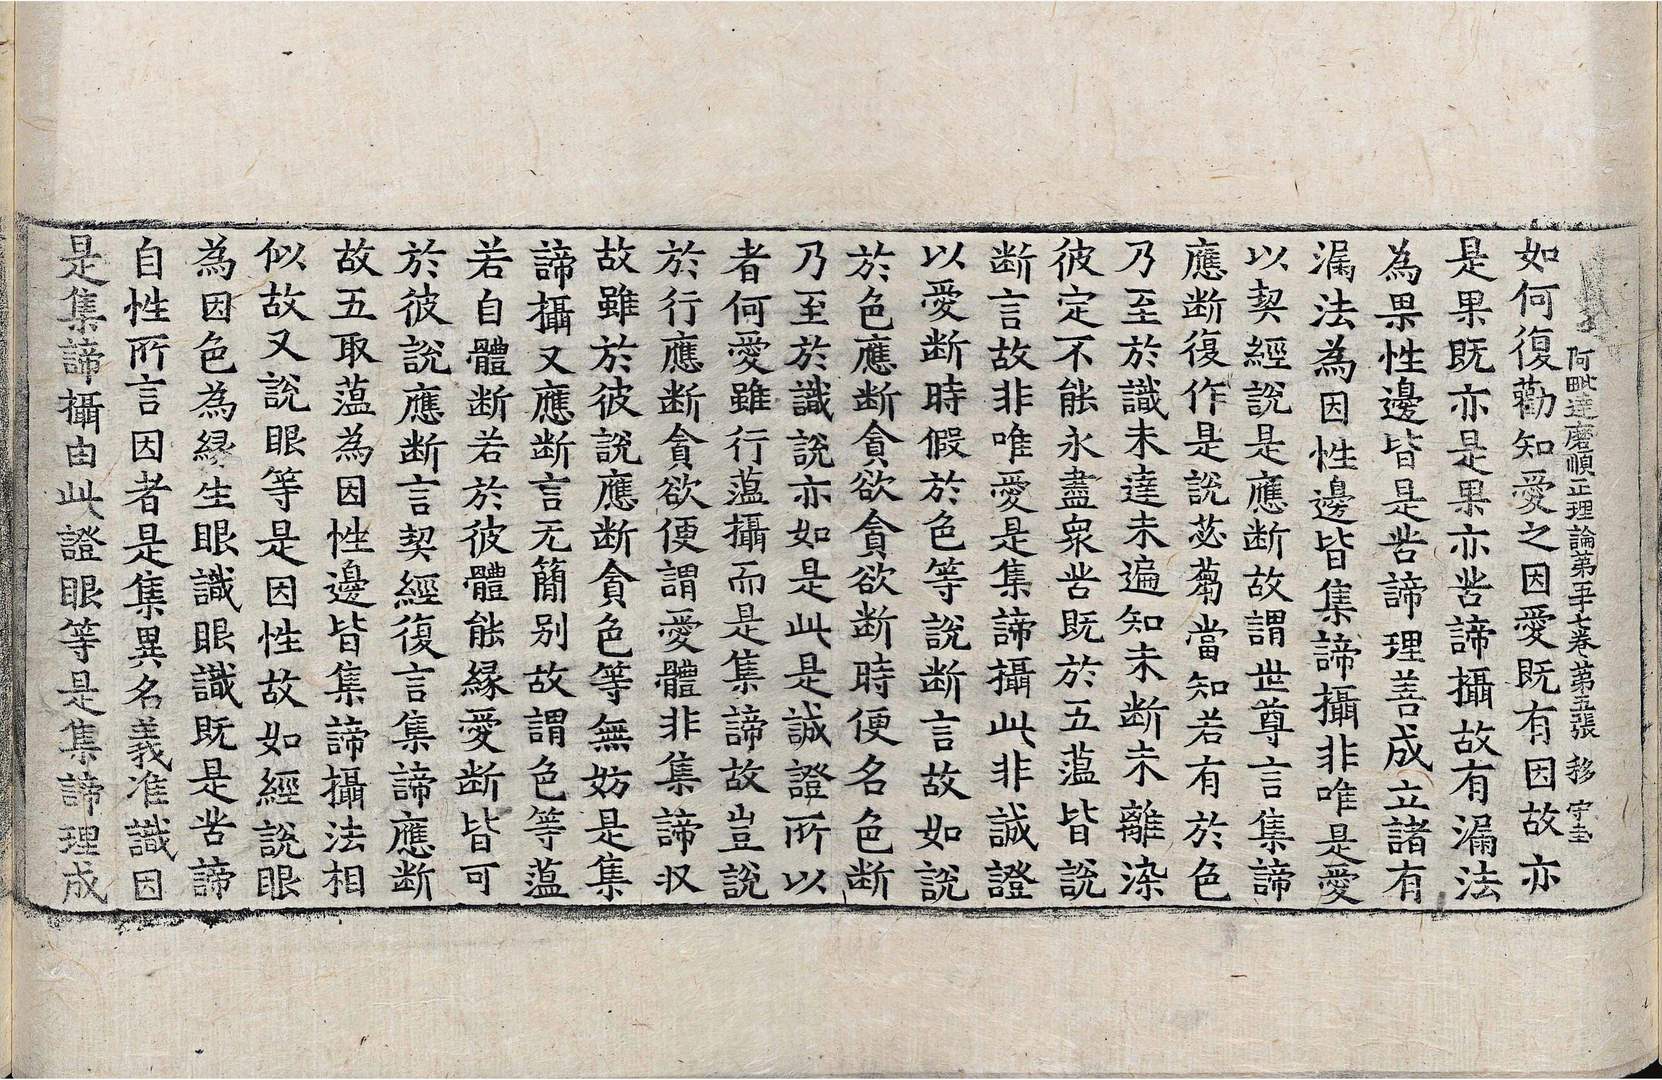 阿毗達磨順正理論第五十七卷 第五張 移 守圭
如何復勸知愛之因愛既有因故亦
是果既亦是果亦苦諦攝故有漏法
為果性邊皆是苦諦理善成立諸有
漏法為因性邊皆集諦攝非唯是愛
以契經說是應断故謂世尊言集諦
應断復作是說苾蒭當知若有於色
乃至於識未達未遍知未断未離染
彼定不能永盡衆苦既於五蕰皆說
断言故非唯愛是集諦攝此非誠證
以愛断時假於色等說断言故如說
於色應断貪欲貪欲断時便名色断
乃至於識說亦如是此是誠證所以
者何愛雖行蕰攝而是集諦故豈說
於行應断貪欲便謂愛體非集諦収
故雖於彼說應断貪色等無妨是集
諦攝又應断言无簡別故謂色等蕰
若自體断若於彼體能緣愛断皆可
於彼說應断言契經復言集諦應断
故五取蕰為因性邊皆集諦攝法相
似故又說眼等是因性故如經說眼
為因色為緣生眼識眼識既是苦諦
自性所言因者是集異名義准識因
是集諦攝由此證眼等是集諦理成